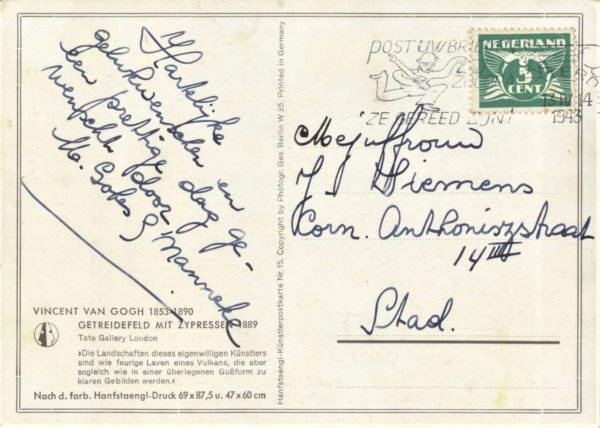 Hartelijke
gelukwenschen en
een prettige dag ge-
wenscht door
M. Gofes & Manneke
VINCENT VAN GOGH 1853-1890
GETREIDEFELD MIT ZYPRESSEN 1889
Tate Gallery London
»Die Landschaften dieses eigenwilligen Künstlers
sind wie feurige Laven eines Vulkans, die aber
sogleich wie in einer überlegenen Gußform zu
klaren Gebilden werden.«
Nach d. farb. Hanfstaengl-Druck 69 x 87,5 u. 47 x 60 cm
Hanfstaengl-Künstlerpostkarte Nr. 15. Copyright by Photogr. Ges. Berlin W 35. Printed in Germany
POST UW BRIE
ZE GEREED ZIJN!
NEDERLAND
5
CENT
14
1943
Mejuffrouw
J J Wiemens
Corn. Anthoniszstraat
14 III
Stad.